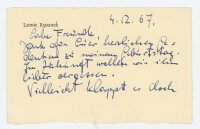 Leonie Rysanek
4.12.67.
Liebe Freunde,
Dank für Euer herzliches Ge-
denken zu meinem Geburtstag.
In Zukunft wollen wir ihn
lieber vergessen.
Vielleicht klappt es doch